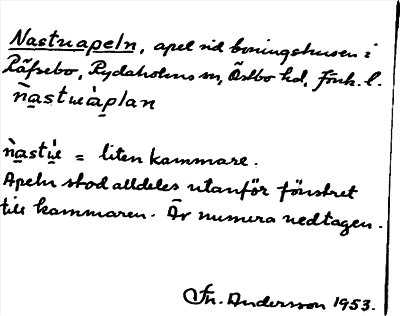 Nastuapeln, apel vid boningshusen i
Räfsebo, Rydaholms sn, Östbo hd, Jönk. l.
nastuàplan

nastu = liten kammare.
Apeln stod alldeles utanför fönstret
till kammaren. Är numera nedtagen.

Fr. Andersson 1953.